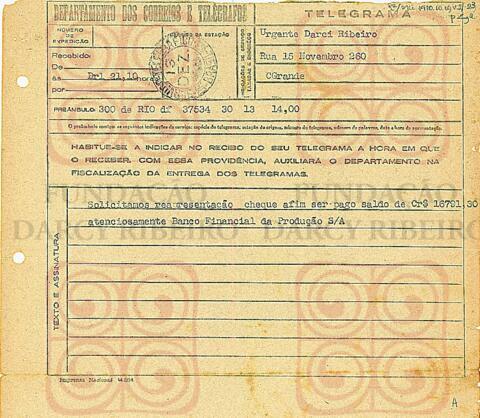 DEPARTAMENTO DOS CORREIOS E TELÉGRAFOS
TELEGRAMA
NÚMERO DE EXPEDIÇÃO
CARIMBO DA ESTAÇÃO
Urgente Darci Ribeiro
Rua 15 Novembro 260
CGrande
Recebido:
De
às Dr1 21,10 horas
por
INDICAÇÕES DE SERVIÇO TAXADAS E ENDEREÇO
PREÂMBULO: 300 de RIO df 37534 30 13 14,00
O preâmbulo contém as seguintes indicações de serviço: espécie do telegrama, estação de origem, número do telegrama, número de palavras, data e hora da apresentação.
HABITUE-SE A INDICAR NO RECIBO DO SEU TELEGRAMA A HORA EM QUE
O RECEBER. COM ESSA PROVIDÊNCIA, AUXILIARÁ O DEPARTAMENTO NA
FISCALIZAÇÃO DA ENTREGA DOS TELEGRAMAS.
FUNDAÇÃO DARCY RIBEIRO
FUNDAÇÃO DARCY RIBEIRO
TEXTO E ASSINATURA
Solicitamos reapresentação cheque afim ser pago saldo de Cr$ 16791,30
atenciosamente Banco Financial da Produção S/A
Imprensa Nacional
A